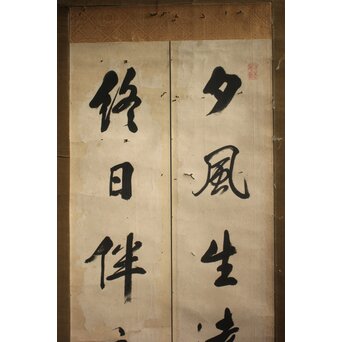 夕風生
終日伴